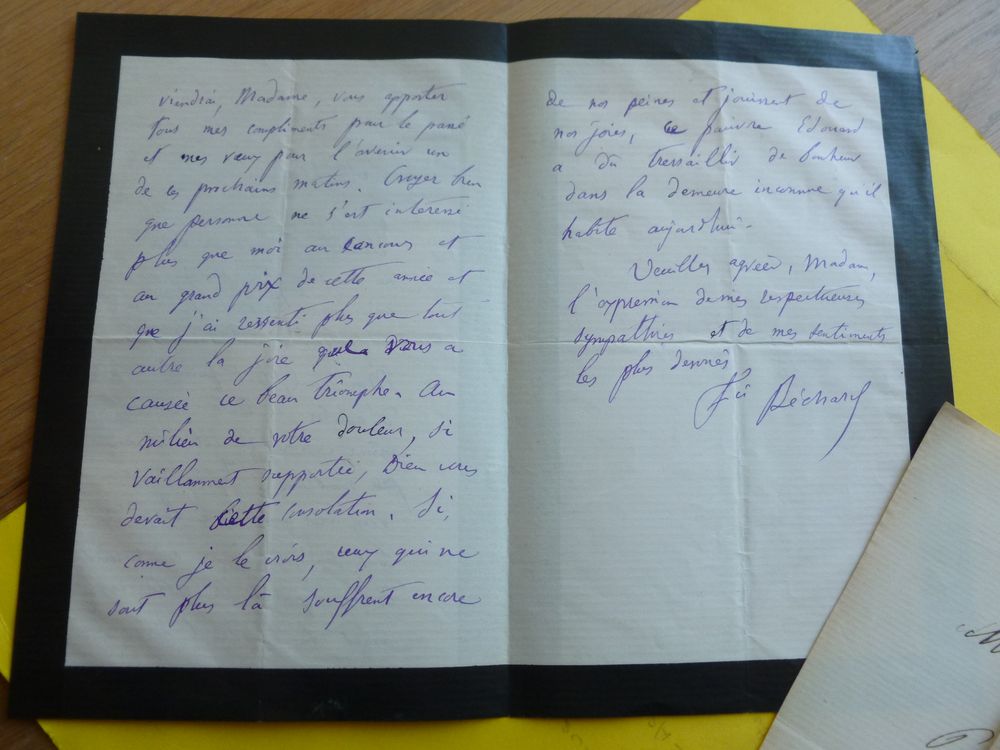 viendrai, Madame, vous apporter
tous mes compliments pour le passé
et mes vœux pour l'avenir un
de ces prochains matins. Croyez bien
que personne ne s'est intéressé
plus que moi au concours et
au grand prix de cette année et
que j'ai ressenti plus que tout
autre la joie que vous a
causée ce beau triomphe. Au
milieu de votre douleur, si
vaillamment supportée, Dieu vous
devait cette consolation. Si,
comme je le crois, ceux qui ne
sont plus là souffrent encore
de nos peines et jouissent de
nos joies, ce pauvre Edouard
a dû tressaillir de bonheur
dans la demeure inconnue qu'il
habite aujourd'hui.
Veuillez agréer, Madame,
l'expression de mes respectueuses
sympathies et de mes sentiments
les plus dévoués
Béchard